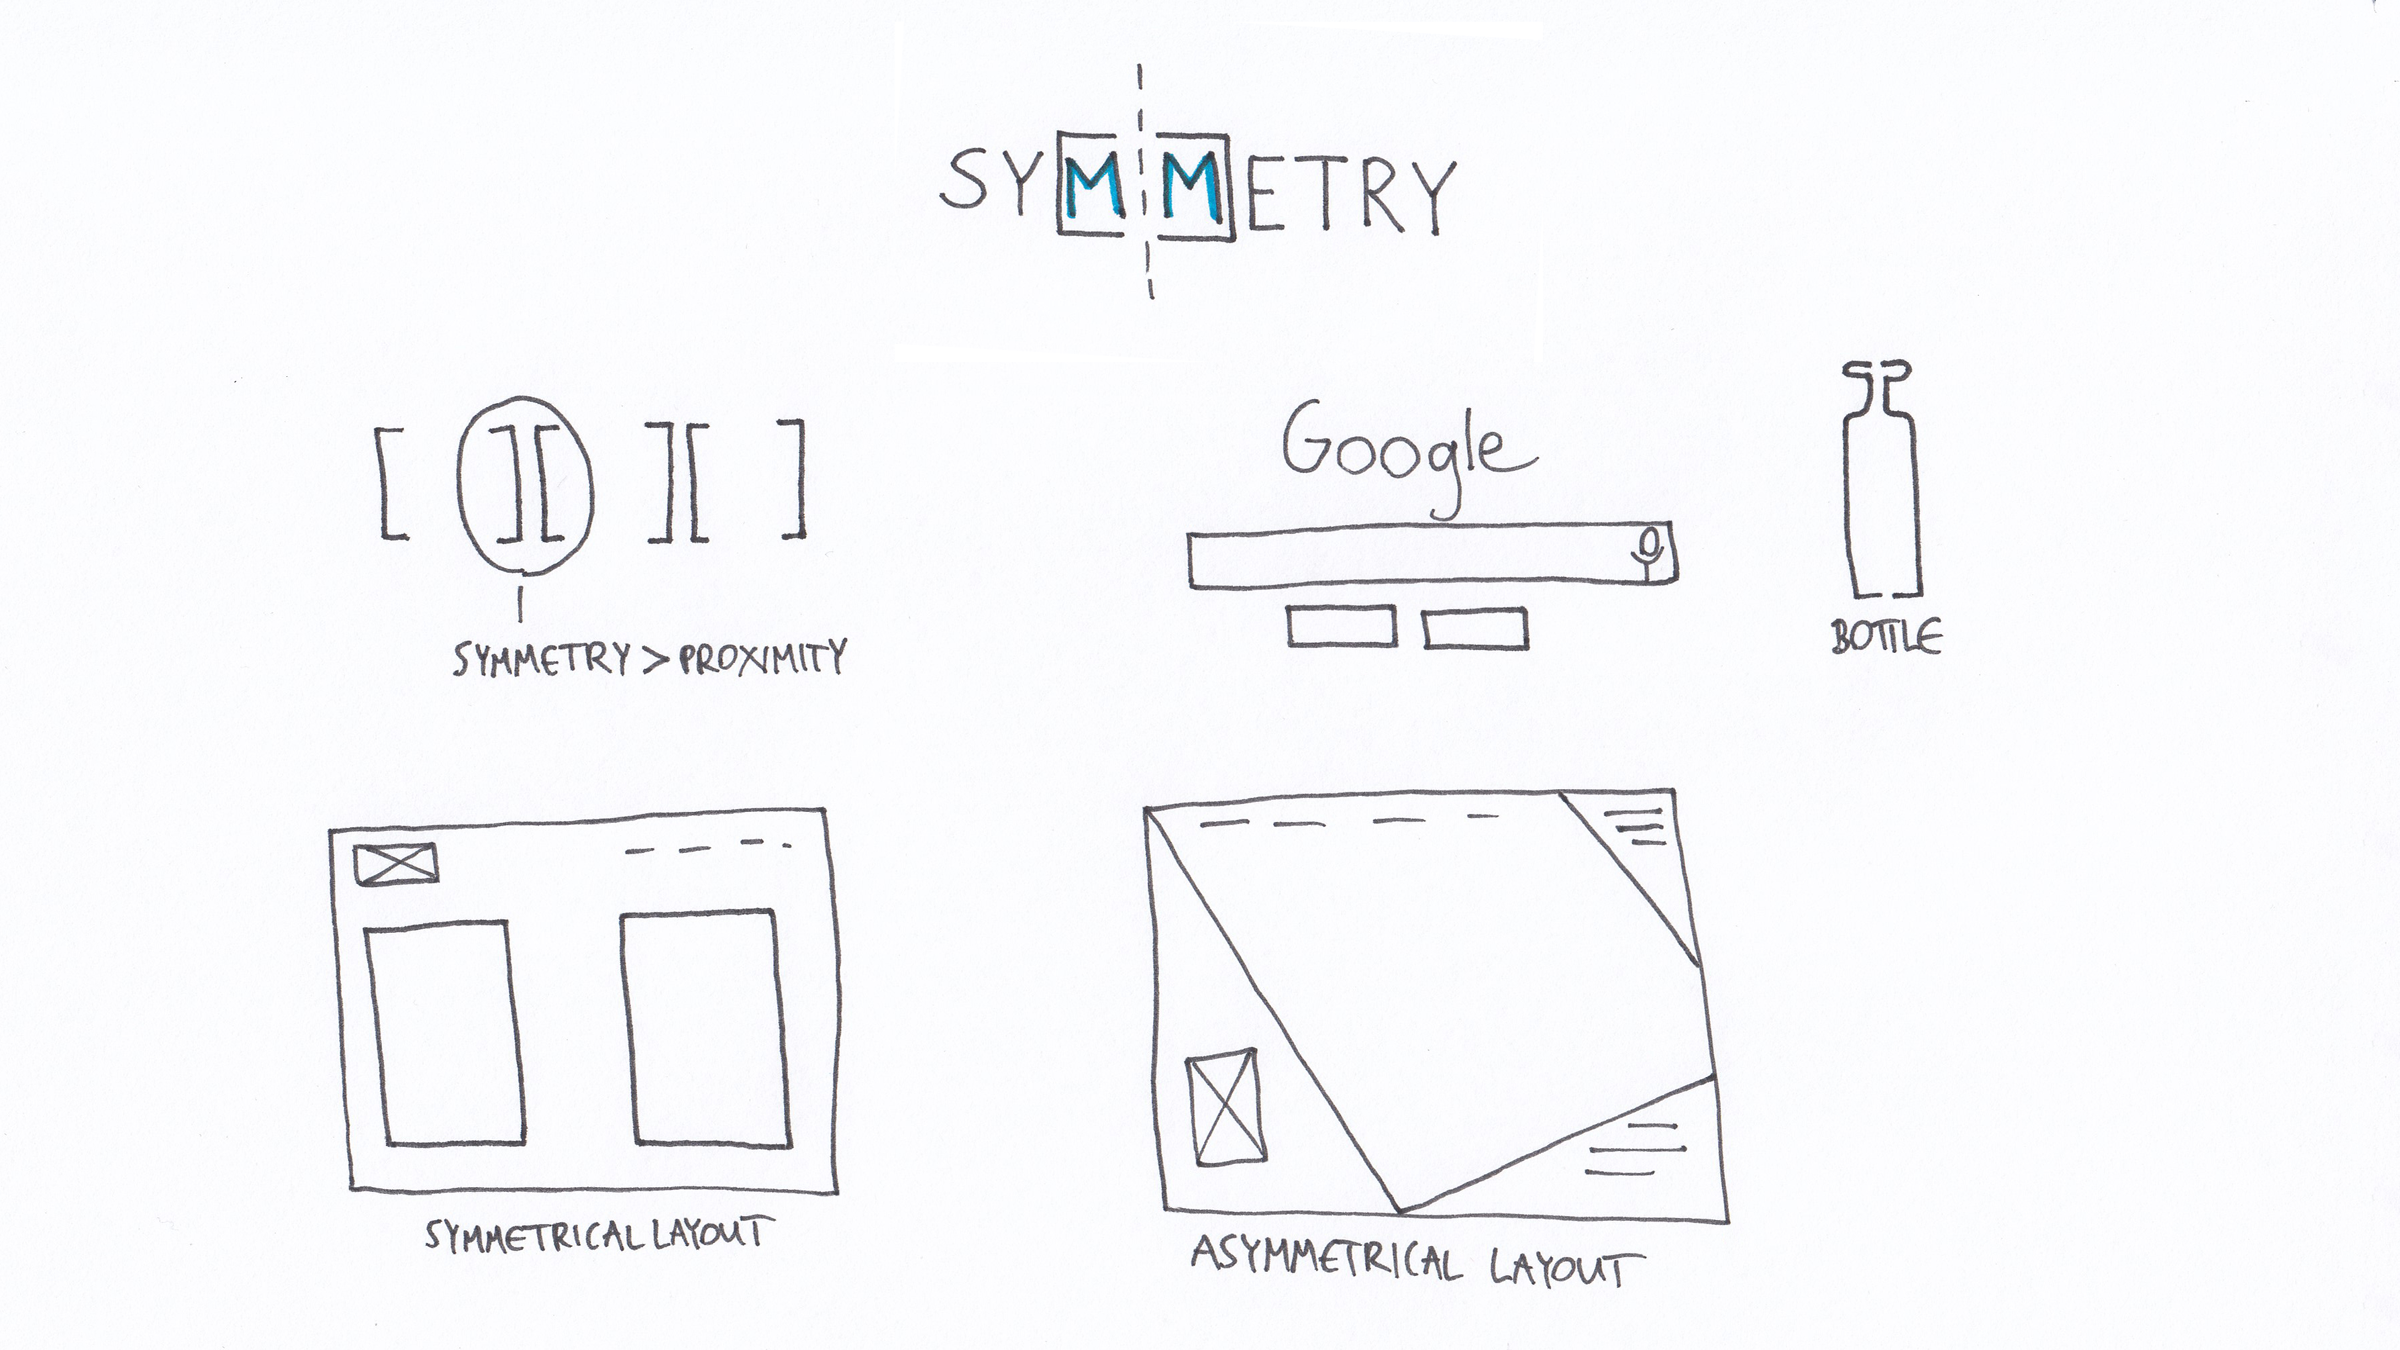 SYMMETRY
[ ][ ][ ]
Google
SYMMETRY > PROXIMITY
BOTTLE
SYMMETRICAL LAYOUT
ASYMMETRICAL LAYOUT